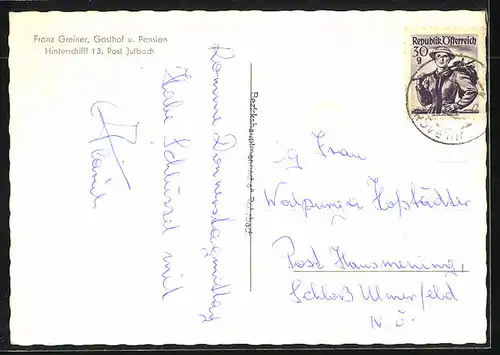 Franz Greiner, Gasthof u. Pension
Hinterschiffl 13, Post Julbach
Komme Donnerstagmittag
Habe Schlüssel mit
Republik Österreich
30
g
Frau
Walpurga Hofstädter
Post Hausmening,
Schloß Ulmerfeld
N Ö.